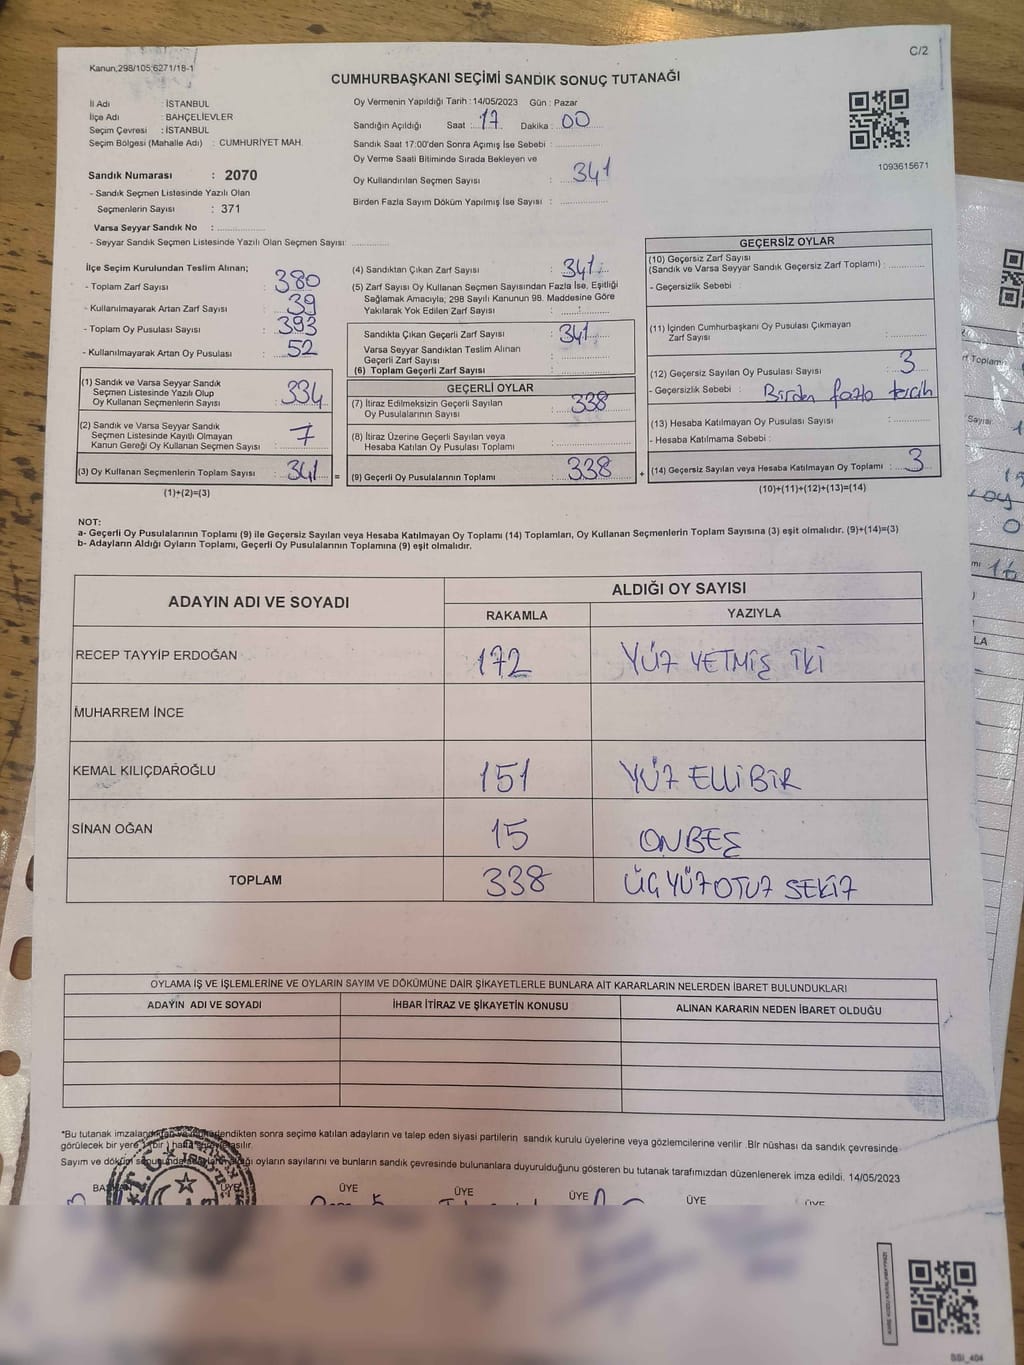 C/2
Kanun,298/105;6271/18-1
CUMHURBAŞKANI SEÇİMİ SANDIK SONUÇ TUTANAĞI
İl Adı : İSTANBUL
İlçe Adı : BAHÇELİEVLER
Seçim Çevresi : İSTANBUL
Seçim Bölgesi (Mahalle Adı) : CUMHURİYET MAH.
Sandık Numarası : 2070
- Sandık Seçmen Listesinde Yazılı Olan
Seçmenlerin Sayısı : 371
Varsa Seyyar Sandık No :
- Seyyar Sandık Seçmen Listesinde Yazılı Olan Seçmen Sayısı:
Oy Vermenin Yapıldığı Tarih : 14/05/2023 Gün : Pazar
Sandığın Açıldığı Saat : 17 Dakika : 00
Sandık Saat 17:00'den Sonra Açımış İse Sebebi :
Oy Verme Saati Bitiminde Sırada Bekleyen ve
Oy Kullandırılan Seçmen Sayısı : 341
Birden Fazla Sayım Döküm Yapılmış İse Sayısı :
1093615671
İlçe Seçim Kurulundan Teslim Alınan;
- Toplam Zarf Sayısı : 380
- Kullanılmayarak Artan Zarf Sayısı : 39
- Toplam Oy Pusulası Sayısı : 393
- Kullanılmayarak Artan Oy Pusulası : 52
(1) Sandık ve Varsa Seyyar Sandık
Seçmen Listesinde Yazılı Olup
Oy Kullanan Seçmenlerin Sayısı : 334
(2) Sandık ve Varsa Seyyar Sandık
Seçmen Listesinde Kayıtlı Olmayan
Kanun Gereği Oy Kullanan Seçmen Sayısı : 7
(3) Oy Kullanan Seçmenlerin Toplam Sayısı : 341 =
(1)+(2)=(3)
(4) Sandıktan Çıkan Zarf Sayısı : 341
(5) Zarf Sayısı Oy Kullanan Seçmen Sayısından Fazla İse, Eşitliği
Sağlamak Amacıyla; 298 Sayılı Kanunun 98. Maddesine Göre
Yakılarak Yok Edilen Zarf Sayısı :
Sandıkta Çıkan Geçerli Zarf Sayısı : 341
Varsa Seyyar Sandıktan Teslim Alınan
Geçerli Zarf Sayısı :
(6) Toplam Geçerli Zarf Sayısı :
GEÇERLİ OYLAR
(7) İtiraz Edilmeksizin Geçerli Sayılan
Oy Pusulalarının Sayısı : 338
(8) İtiraz Üzerine Geçerli Sayılan veya
Hesaba Katılan Oy Pusulası Toplamı :
(9) Geçerli Oy Pusulalarının Toplamı : 338 +
GEÇERSİZ OYLAR
(10) Geçersiz Zarf Sayısı
(Sandık ve Varsa Seyyar Sandık Geçersiz Zarf Toplamı) :
- Geçersizlik Sebebi :
(11) İçinden Cumhurbaşkanı Oy Pusulası Çıkmayan
Zarf Sayısı :
(12) Geçersiz Sayılan Oy Pusulası Sayısı : 3
- Geçersizlik Sebebi : Birden fazla tercih
(13) Hesaba Katılmayan Oy Pusulası Sayısı :
- Hesaba Katılmama Sebebi :
(14) Geçersiz Sayılan veya Hesaba Katılmayan Oy Toplamı : 3
(10)+(11)+(12)+(13)=(14)
NOT:
a- Geçerli Oy Pusulalarının Toplamı (9) ile Geçersiz Sayılan veya Hesaba Katılmayan Oy Toplamı (14) Toplamları, Oy Kullanan Seçmenlerin Toplam Sayısına (3) eşit olmalıdır. (9)+(14)=(3)
b- Adayların Aldığı Oyların Toplamı, Geçerli Oy Pusulalarının Toplamına (9) eşit olmalıdır.
ADAYIN ADI VE SOYADI
ALDIĞI OY SAYISI
RAKAMLA YAZIYLA
RECEP TAYYİP ERDOĞAN 172 YÜZ YETMİŞ İKİ
MUHARREM İNCE
KEMAL KILIÇDAROĞLU 151 YÜZ ELLİBİR
SİNAN OĞAN 15 ONBEŞ
TOPLAM 338 ÜÇYÜZOTUZ SEKİZ
OYLAMA İŞ VE İŞLEMLERİNE VE OYLARIN SAYIM VE DÖKÜMÜNE DAİR ŞİKAYETLERLE BUNLARA AİT KARARLARIN NELERDEN İBARET BULUNDUKLARI
ADAYIN ADI VE SOYADI İHBAR İTİRAZ VE ŞİKAYETİN KONUSU ALINAN KARARIN NEDEN İBARET OLDUĞU
*Bu tutanak sonra seçime katılan adayların ve talep eden siyasi partilerin sandık kurulu üyelerine veya gözlemcilerine verilir .Bir nüshası da sandık çevresinde
görülecek bir yere
Sayım ve oyların sayılarını ve bunların sandık çevresinde bulunanlara duyurulduğunu gösteren bu tutanak tarafımızdan düzenlenerek imza edildi. 14/05/2023
ÜYE ÜYE ÜYE ÜYE ÜYE ÜYE